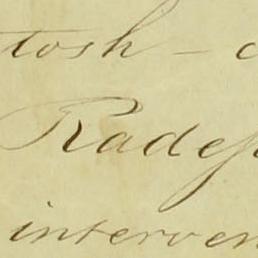 tosh - c
Rade
interven